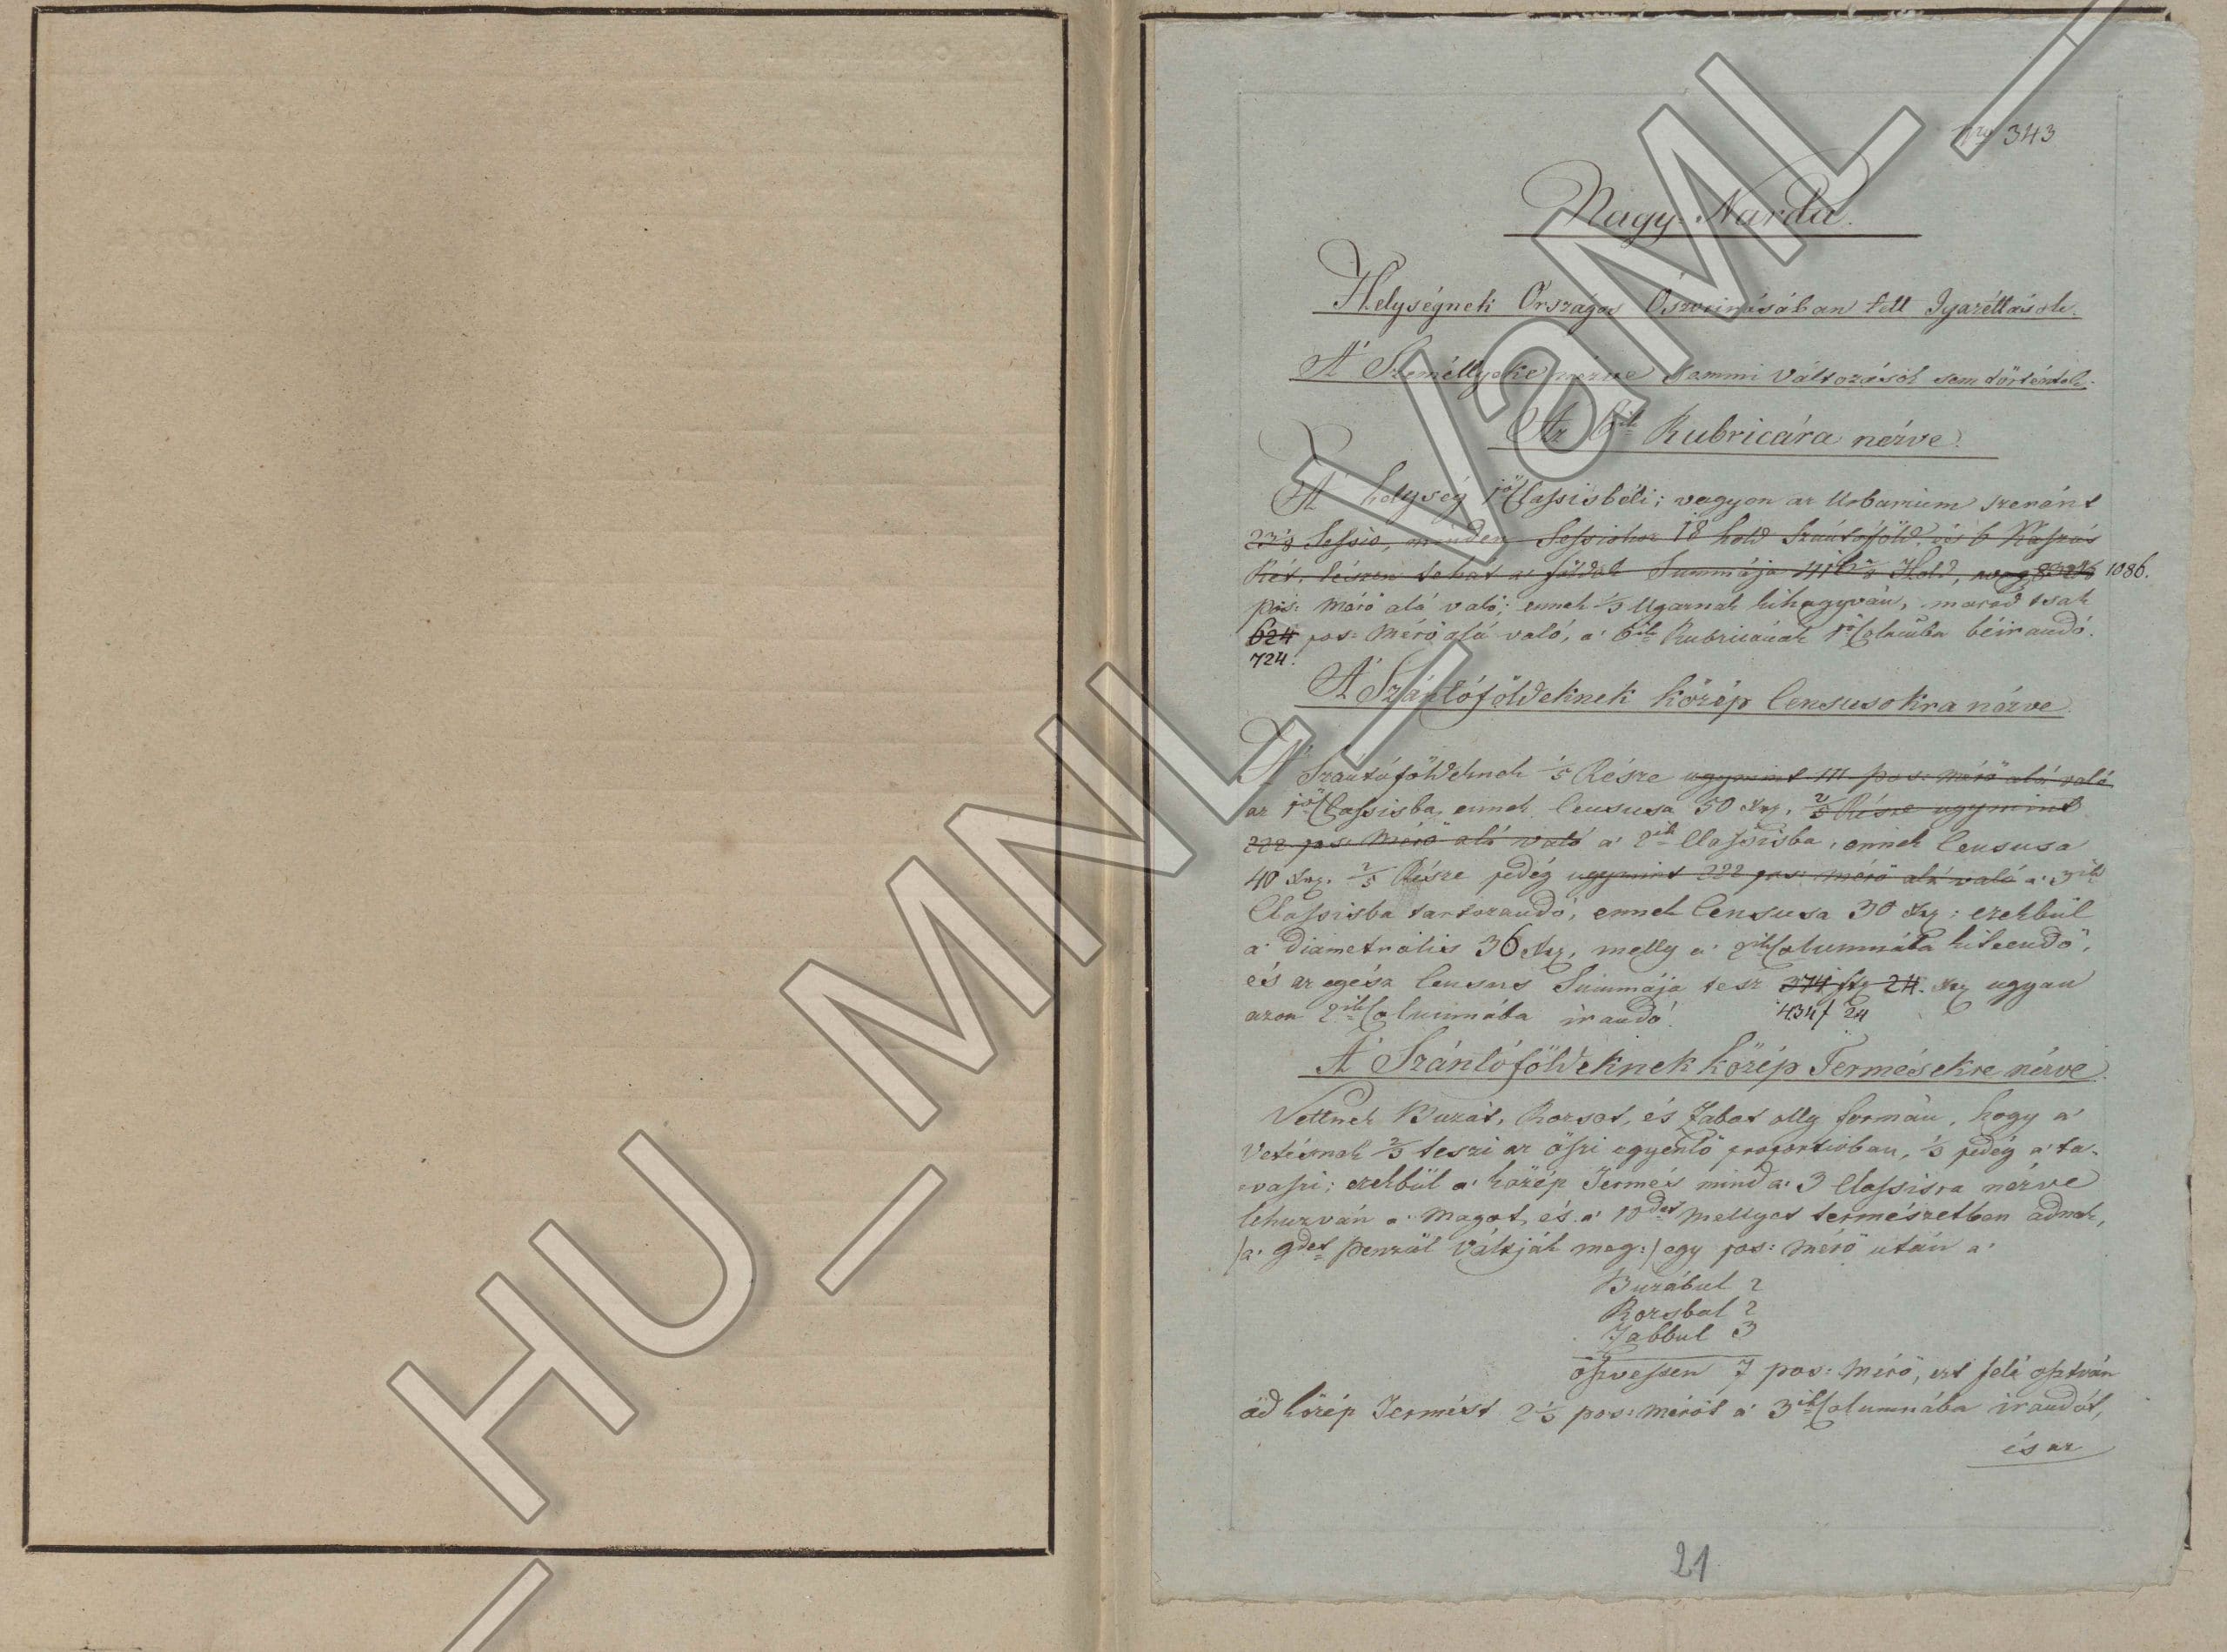 Nro 343
Nagy-Narda.
Helységnek Országos Öszveirásában tett Igazéttások.
A' Személlyekre nézve semmi változások sem történtek.
Az 6ik Rubricára nézve.
A' helység 1ső Classisbéli; vagyon az Urbarium szerént
23 Sessio, minden Sessiohoz 18 hold Szántóföld és 6 Kaszás
Rét, lészen tehát a' földek Summája Hold, 1086.
pos: mérő alá való; ennek 1/3 Ugarnak kihagyván, marad tsak
624 pos: mérő alá való, a' 6ik Rubricának 1ső Columnába béirandó.
724.
A' Szántóföldeknek közép Censusokra nézve.
A' Szántóföldeknek 1/5 Része ugymint 111 pos: mérő alá való
az 1ső Classisba, ennek Censusa 50 Xrz, 2/5 Része ugymint
222 pos: mérő alá való a' 2ik Classisba, ennek Censusa
40 Xrz. 2/5 Része pedég ugymint 222 pos: mérő alá való a' 3ik
Classisba tartozandó, ennek Censusa 30 Xrz: ezekbül
a' diametralis 36 Xrz, melly a' 2ik Columnába kiteendő,
és az egész Census Summája tesz 374 f 24. Xrz ugyan
azon 2ik Columnába irandó. 434 f 24
A' Szántóföldeknek közép Termésekre nézve.
Vettnek Buzát, Rozsot, és Zabot olly formán, hogy a'
Vetésnek 2/3 teszi az őszi egyenlő proportioban, 1/3 pedég a' ta-
vaszi; ezekbül a' közép Termés mind a' 3 Classisra nézve
lehuzván a' Magot, és a' 10det mellyet természetben adnak,
/a' 9det pénzül váltják meg:/ egy pos: mérő után a'
Buzábul 2
Rozsbul 2
Zabbul 3
öszvessen 7 pos: mérő, ezt felé osztván
ád közép Termést 2 1/3 pos: mérőt a' 3ik Columnába irandót,
és az
21
HU_MNL_VaML_